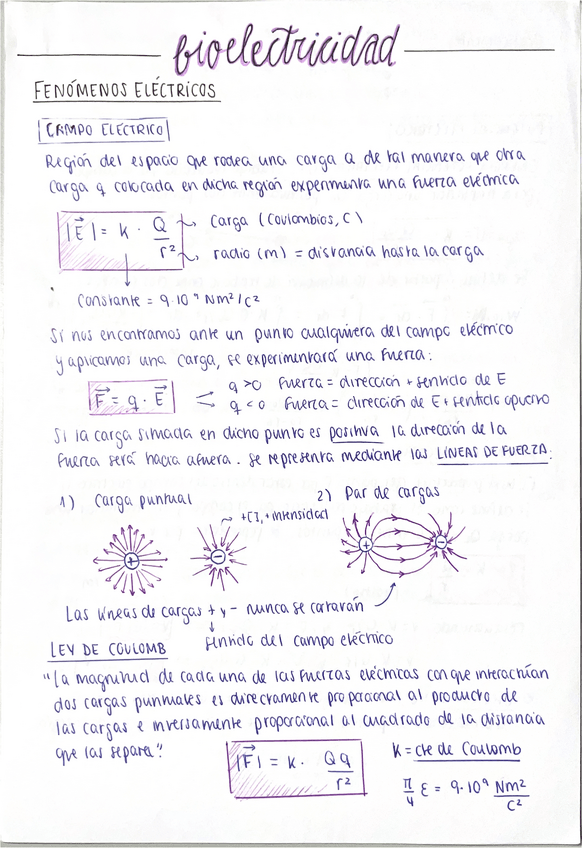 bioelectricidad
FENÓMENOS ELÉCTRICOS
CAMPO ELÉCTRICO
Región del espacio que rodea una carga Q de tal manera que otra
carga q colocada en dicha región experimenta una fuerza eléctrica
|E⃗| = k · Q/r² → Carga (Coulombios, C)
radio (m) = distancia hasta la carga
Constante = 9·10⁹ Nm²/C²
Si nos encontramos ante un punto cualquiera del campo eléctrico
y aplicamos una carga, se experimentará una fuerza:
F⃗ = q · E⃗
q > 0 Fuerza = dirección + sentido de E
q < 0 Fuerza = dirección de E + sentido opuesto
Si la carga situada en dicho punto es positiva la dirección de la
fuerza será hacia afuera. Se representa mediante las LÍNEAS DE FUERZA:
1) Carga puntual
2) Par de cargas
+CJ, + intensidad
+
-
+
-
Las líneas de cargas + y - nunca se cortarán
sentido del campo eléctrico
LEY DE COULOMB
"La magnitud de cada una de las fuerzas eléctricas con que interactúan
dos cargas puntuales es directamente proporcional al producto de
las cargas e inversamente proporcional al cuadrado de la distancia
que las separa".
|F⃗| = k · Qq/r²
K = cte de Coulomb
π/4 ε = 9·10⁹ Nm²/C²